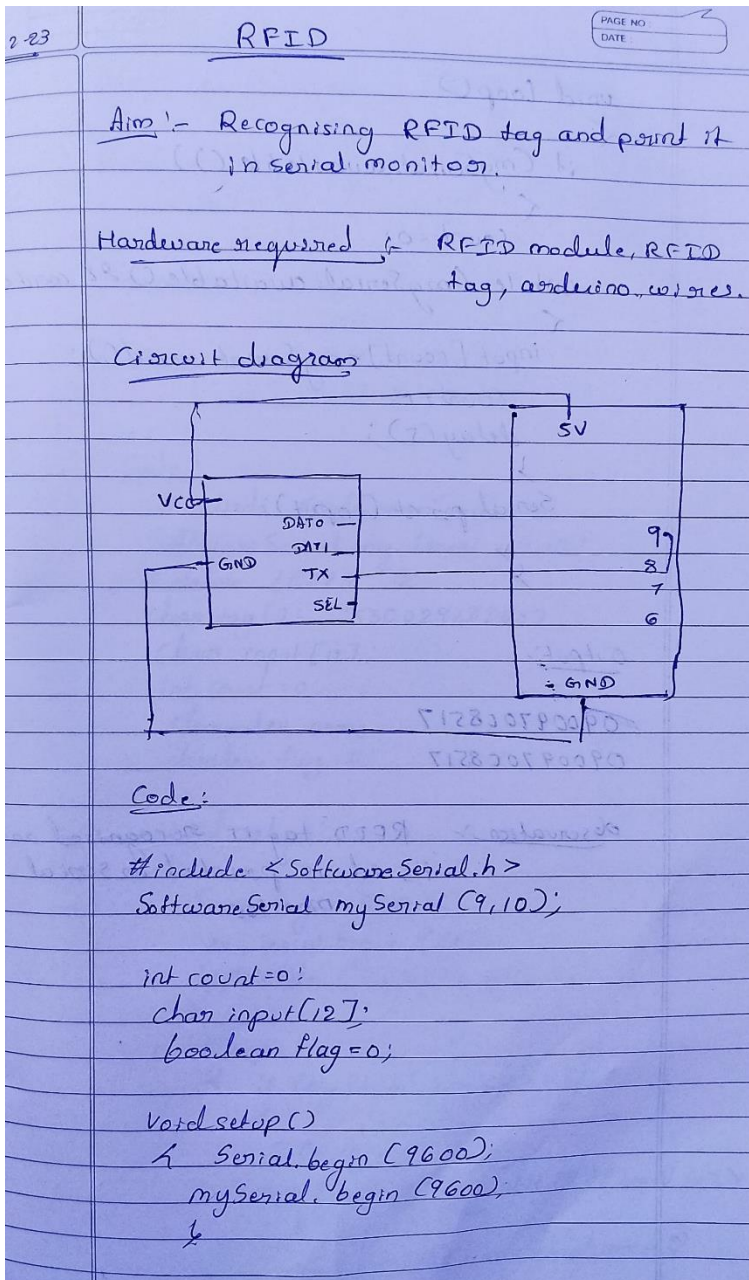 2-23
RFID
PAGE NO
DATE
Aim :- Recognising RFID tag and print it
in serial monitor.
Hardware required :- RFID module, RFID
tag, arduino, wires.
Circuit diagram
5V
VCC
DAT0
DAT1
GND
TX
SEL
9
8
7
6
GND
Code:
#include <SoftwareSerial.h>
SoftwareSerial mySerial (9,10);
int count=0;
char input[12];
boolean flag=0;
void setup ()
{ Serial.begin (9600);
mySerial. begin (9600);
}